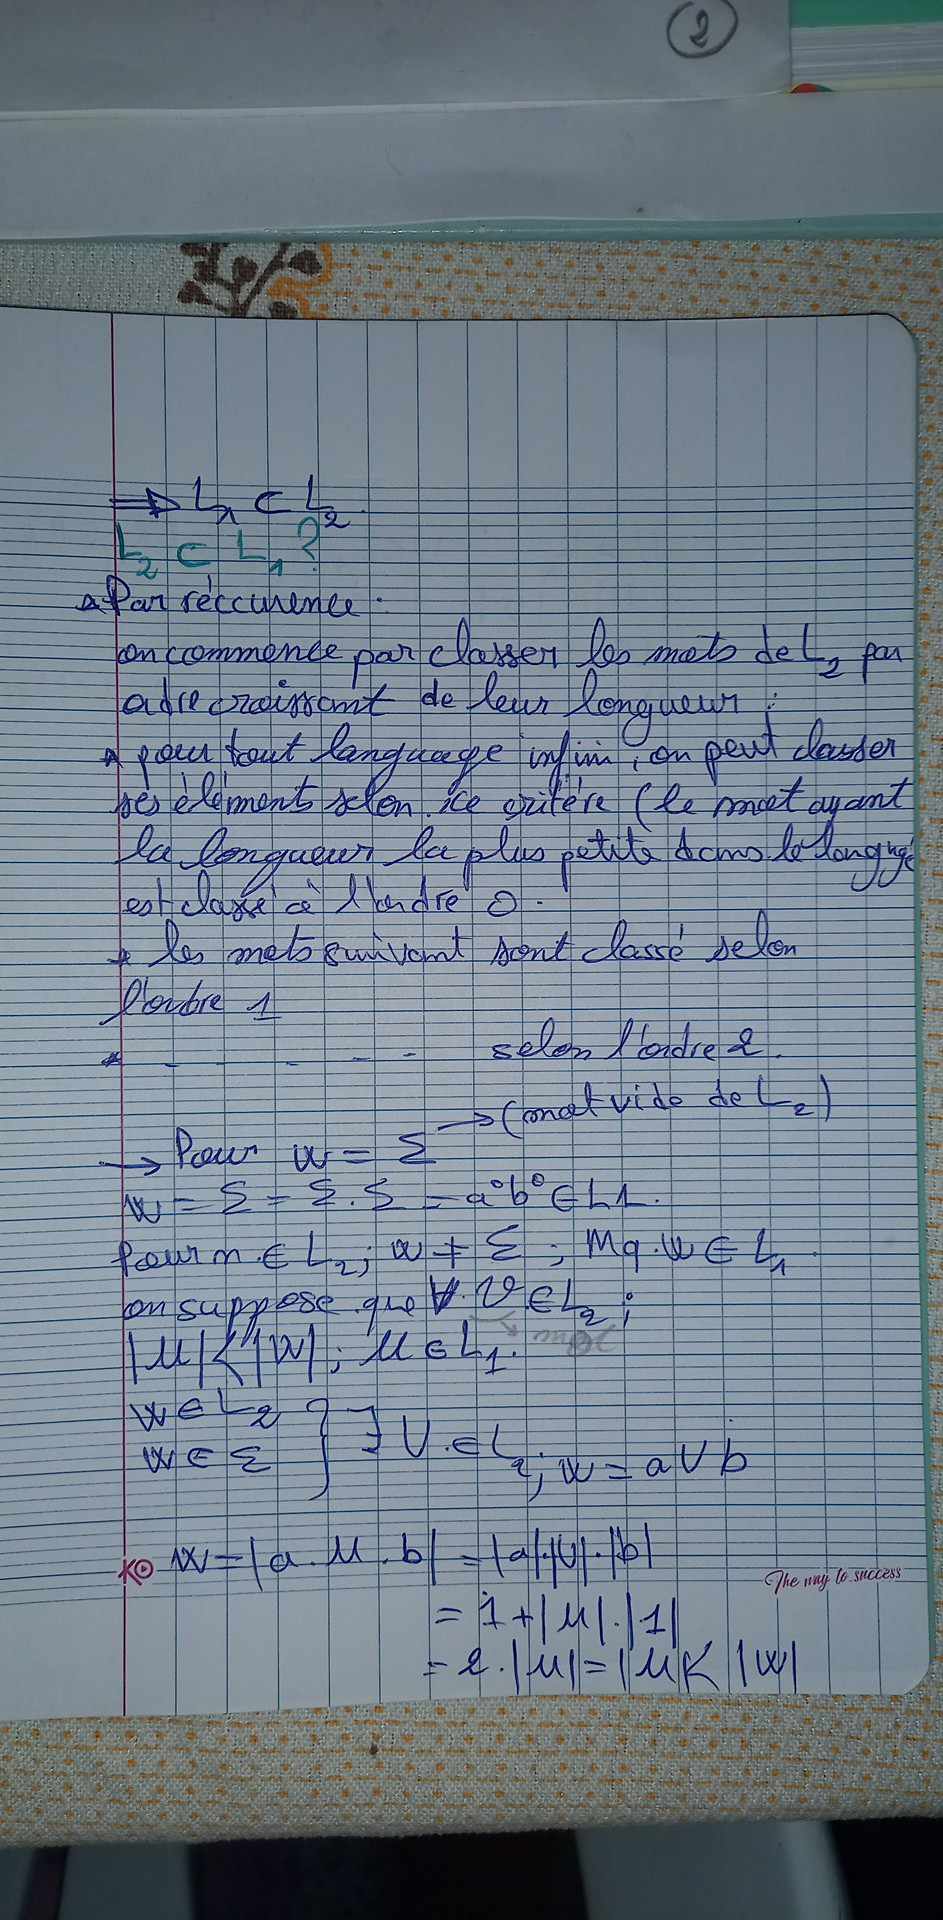 2
⇒ L1 ⊂ L2.
L2 ⊂ L1 ?
Par réccurence :
on commence par classer les mots de L2 par
odre croissant de leur longueur :
* pour tout language infini, on peut classer
ses élements selon ce critére (le mot ayant
la longueur la plus petite dans le
est classé à l'ordre 0.
* les mots suivant sont classé selon
l'ordre 1
* - - - - - - selon l'ordre 2.
→ (mot vide de L2)
→ Pour w = Σ
w = Σ = Σ.Σ = a°b° ∈ L1.
Pour ∈ L2; w ≠ Σ ; Mq. w ∈ L1.
on suppose que ∀. V ∈ L2 ;
|u| < |w| ; u ∈ L1.
w ∈ L2
w ∈ Σ } ∃ V. ∈ L2; w = a V b
w = |a . u . b| = |a|.|u|.|b|
The way to success
= 1 + |u|.|1|
= 2.|u| = |u| < |w|